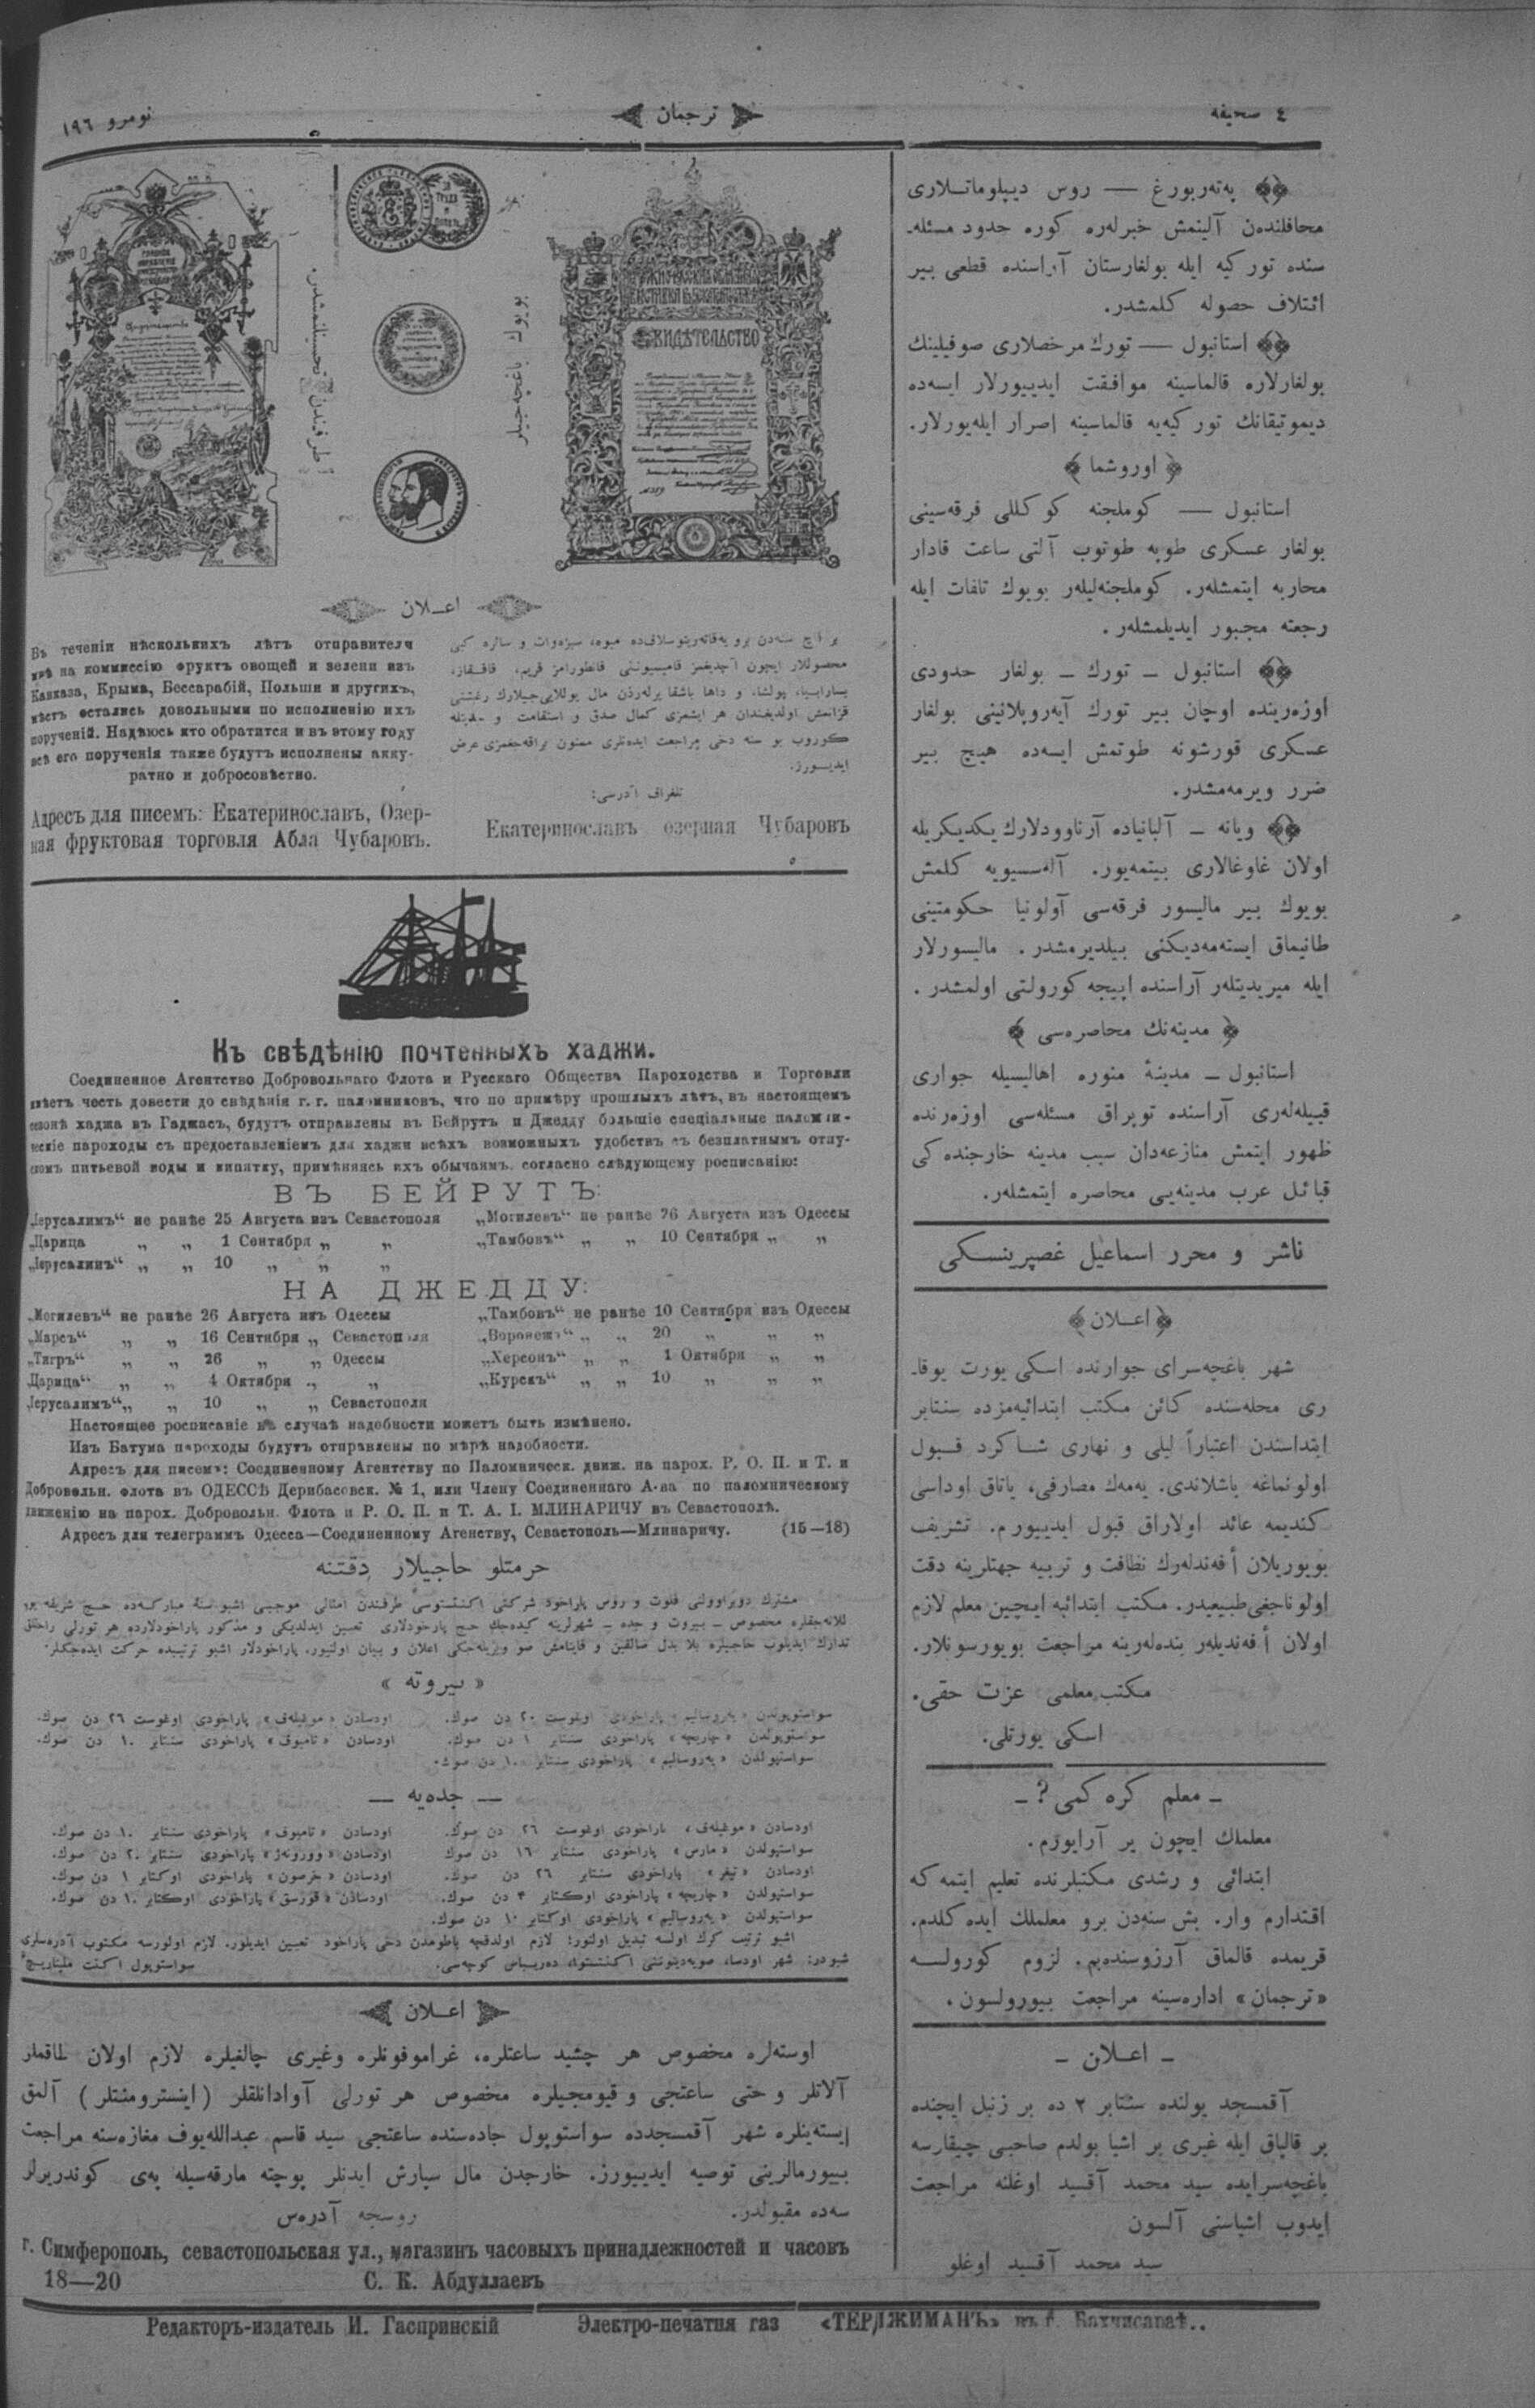 ٤ صحيفه
ترجمان
نومرو ١٩٦
پەتەربورغ — روس ديپلوماتلاری
محافلندەن آلينمش خبرلەرە كورە حدود مسئلە-
سندە توركيە ايلە بولغارستان آراسندە قطعی بير
ائتلاف حصولە كلمشدر.
استانبول — تورك مرخصلاری صوفيلينك
بولغارلارە قالماسينە موافقت ايدييورلار ايسەدە
ديموتيقانك توركيەيە قالماسينە إصرار ايلەيورلار.
﴿ اوروشما ﴾
استانبول — كوملجنە كوكللی فرقەسينی
بولغار عسكری طوپە طوتوب آلتی ساعت قادار
محاربە ايتمشلەر. كوملجنەليلەر بويوك تلفات ايلە
رجعتە مجبور ايديلمشلەر.
استانبول — تورك — بولغار حدودی
اوزەريندە اوچان بير تورك آيەروپلانينی بولغار
عسكری قورشونە طوتمش ايسەدە هيچ بير
ضرر ويرمەمشدر.
ويانە — آلبانيادە آرناوودلارك يكديكريلە
اولان غاوغالاری بيتمەيور. آلەسسيويە كلمش
بويوك بير ماليسور فرقەسی آولونيا حكومتينی
طانيماق ايستەمەديكنی بيلديرمشدر. ماليسورلار
ايلە ميريديتلەر آراسندە اپيجە كورولتی اولمشدر.
﴿ مدينەنك محاصرەسی ﴾
استانبول — مدينۀ منورە اهاليسيلە جواری
قبيلەلەری آراسندە توپراق مسئلەسی اوزەرندە
ظهور ايتمش منازعەدان سبب مدينە خارجندە كی
قبائل عرب مدينەيی محاصرە ايتمشلەر.
ناشر و محرر اسماعيل غصپرينسكی
﴿اعلان﴾
شهر باغچەسرای جوارندە اسكی يورت يوقا-
ری محلەسندە كائن مكتب ابتدائيەمزدە سنتابر
ابتداسندن اعتباراً ليلی و نهاری شاكرد قبول
اولونماغە باشلاندی. يەمەك مصارفی، ياتاق اوداسی
كنديمە عائد اولاراق قبول ايدييورم. تشريف
بويوريلان أفەندلەرك نظافت و تربيە جهتلرينە دقت
اولوناجغی طبيعيدر. مكتب ابتدائيە ايچين معلم لازم
اولان أفەنديلەر بندەلەرينە مراجعت بويورسونلار.
مكتب معلمی عزت حقی.
اسكی يورتلی.
— معلم كرە كمی؟ —
معلملك ايچون ير آرايورم.
ابتدائی و رشدی مكتبلرندە تعليم ايتمە كە
اقتدارم وار. بش سنەدن برو معلملك ايدە كلدم.
قريمدە قالماق آرزوسندەيم. لزوم كورولسە
«ترجمان» ادارەسينە مراجعت بيورولسون.
— اعلان —
آقمسجد يولندە سنتابر ٢ دە بر زنبل ايچندە
بر قالپاق ايلە غيری بر اشيا بولدم صاحبی چيقارسە
باغچەسرايدە سيد محمد آقسيد اوغلنە مراجعت
ايدوب اشياسنی آلسون
سيد محمد آقسيد اوغلو
بويوك باغچەجيلر
طرفيندن تحسينلنمشدر.
СВИДѢТЕЛЬСТВО
اعلان
Въ теченіи нѣсколькихъ лѣтъ отправителя
мнѣ на коммиссію фруктъ овощей и зелени изъ
Кавказа, Крыма, Бессарабій, Польши и другихъ,
мѣстъ остались довольными по исполненію ихъ
порученій. Надѣюсь кто обратится и въ этому году
всѣ его порученія также будутъ исполнены акку-
ратно и добросовѣстно.
Адресъ для писемъ: Екатеринославъ, Озер-
ная фруктовая торговля Абла Чубаровъ.
بر قاچ سنەدن برو يەقاتەرينوسلافدە ميوە، سبزەوات و سائرە كبی
محصوللار ايچون آچديغمز قاميسيوننی قانطورامز قريم، قافقاز،
بسارابيا، پولشا، و داها باشقا يرلەرذن مال يوللايیجيلارك رغبتنی
قزانمش اولديغندان هر ايشمزی كمال صدق و استقامت و
كوروب بو سنە دخی مراجعت ايدەنلری ممنون براقەجغمزی عرض
ايدييورز.
تلغراف آدرسی:
Екатеринославъ озерная Чубаровъ
Къ свѣдѣнію почтенныхъ хаджи.
Соединенное Агентство Добровольнаго Флота и Русскаго Общества Пароходства и Торговли
имѣетъ честь довести до свѣдѣнія г. г. паломниковъ, что по примѣру прошлыхъ лѣтъ, въ настоящемъ
сезонѣ хаджа въ Гаджасъ, будутъ отправлены въ Бейрутъ и Джедду большіе спеціальные паломни-
ческіе пароходы съ предоставленіемъ для хаджи всѣхъ возможныхъ удобствъ съ безплатнымъ отпу-
скомъ питьевой воды и кипятку, примѣняясь ихъ обычаямъ, согласно слѣдующему росписанію:
ВЪ БЕЙРУТЪ:
„Іерусалимъ“ не ранѣе 25 Августа изъ Севастополя „Могилевъ“ не ранѣе 26 Августа изъ Одессы
„Царица „ „ 1 Сентября „ „ „Тамбовъ“ „ „ 10 Сентября „ „
„Іерусалимъ“ „ „ 10 „ „ „
НА ДЖЕДДУ:
„Могилевъ“ не ранѣе 26 Августа изъ Одессы „Тамбовъ“ не ранѣе 10 Сентября изъ Одессы
„Марсъ“ „ „ 16 Сентября „ Севастополя „Воронежъ“ „ „ 20 „ „ „
„Тигръ“ „ „ 26 „ „ Одессы „Херсонъ“ „ „ 1 Октября „ „
„Царица“ „ „ 4 Октября „ „ „Курскъ“ „ „ 10 „ „ „
„Іерусалимъ“ „ „ 10 „ „ Севастополя
Настоящее росписаніе въ случаѣ надобности можетъ быть измѣнено.
Изъ Батума пароходы будутъ отправлены по мѣрѣ надобности.
Адресъ для писемъ: Соединенному Агентству по Паломническ. движ. на парох. Р. О. П. и Т. и
Добровольн. флота въ ОДЕССѢ Дерибасовск. № 1, или Члену Соединеннаго А-ва по паломническому
движенію на парох. Добровольн. Флота и Р. О. П. и Т. А. І. МЛИНАРИЧУ въ Севастополѣ.
Адресъ для телеграммъ Одесса—Соединенному Агенству, Севастополь—Млинаричу. (15—18)
حرمتلو حاجيلار دقتنە
مشترك دوبراوولنی فلوت و روس پاراخود شركتی اكنتستوسی طرفندن امثالی موجبی اشبو سنۀ مباركەدە حج شريفە
مخصوص — بيروت و جدە — شهرلرينە كيدەجك حج پاراخودلاری تعيين ايدلديكی و مذكور پاراخودلاردە هر تورلی راحتلق
تدارك ايديلوب حاجيلرە بلا بدل صالقين و قاينامش صو ويريلەجكی اعلان و بيان اولنيور، پاراخودلار اشبو ترتيبدە حركت ايدەجكلر:
« بيروتە »
سواستوپولدن «يەروساليم» پاراخودی اوغوست ٢٠ دن صوك. اودسادن «موغيلەف» پاراخودی اوغوست ٢٦ دن صوك.
سواستوپولدن «چاريچە» پاراخودی سنتابر ١ دن صوك. اودسادن «تامبوف» پاراخودی سنتابر ١٠ دن صوك.
سواستپولدن «يەروساليم» پاراخودی سنتابر ١٠ دن صوك.
— جدەيە —
اودسادن «موغيلەف» پاراخودی اوغوست ٢٦ دن صوك. اودسادن «تامبوف» پاراخودی سنتابر ١٠ دن صوك.
سواستپولدن «مارس» پاراخودی سنتابر ١٦ دن صوك اودسادن «وورونەژ» پاراخودی سنتابر ٢٠ دن صوك.
اودسادن «تيغر» پاراخودی سنتابر ٢٦ دن صوك. اودسادن «خرصون» پاراخودی اوكتابر ١ دن صوك.
سواستپولدن «چاريچە» پاراخودی اوكتابر ٤ دن صوك. اودسادن «قورسق» پاراخودی اوكتابر ١٠ دن صوك.
سواستپولدن «يەروساليم» پاراخودی اوكتابر ١٠ دن صوك.
اشبو ترتيب كرك اولسە تبديل اولنور؛ لازم اولدقچە باطومدن دخی پاراخود تعيين ايديلور. لازم اولورسە مكتوب آدرەسلری
شبودر: شهر اودسا، صويەدينوننی اكنتستوا، دەريباس كوچەسی. سواستوپول اكنت ملينار يچ
اعلان
اوستەلرە مخصوص هر چشيد ساعتلرە، غراموفونلرە وغيری چالغيلرە لازم اولان طاقملر
آلاتلر و حتی ساعتجی و قيومجيلرە مخصوص هر تورلی آوادانلقلر (اينسترومنتلر) آلمق
إيستەينلرە شهر آقمسجددە سواستوپول جادەسندە ساعتجی سيد قاسم عبداللەيوف مغازەسنە مراجعت
بييورمالرينی توصيە ايدييورز. خارجدن مال سپارش ايدنلر پوچتە مارقەسيلە پەی كوندريرلر
سەدە مقبولدر. روسجە آدرەس
г. Симферополь, севастопольская ул., магазинъ часовыхъ принадлежностей и часовъ
18—20 С. К. Абдуллаевъ
Редакторъ-издатель И. Гаспринскій Электро-печатня газ «ТЕРДЖИМАНЪ» въ г. Бахчисараѣ..